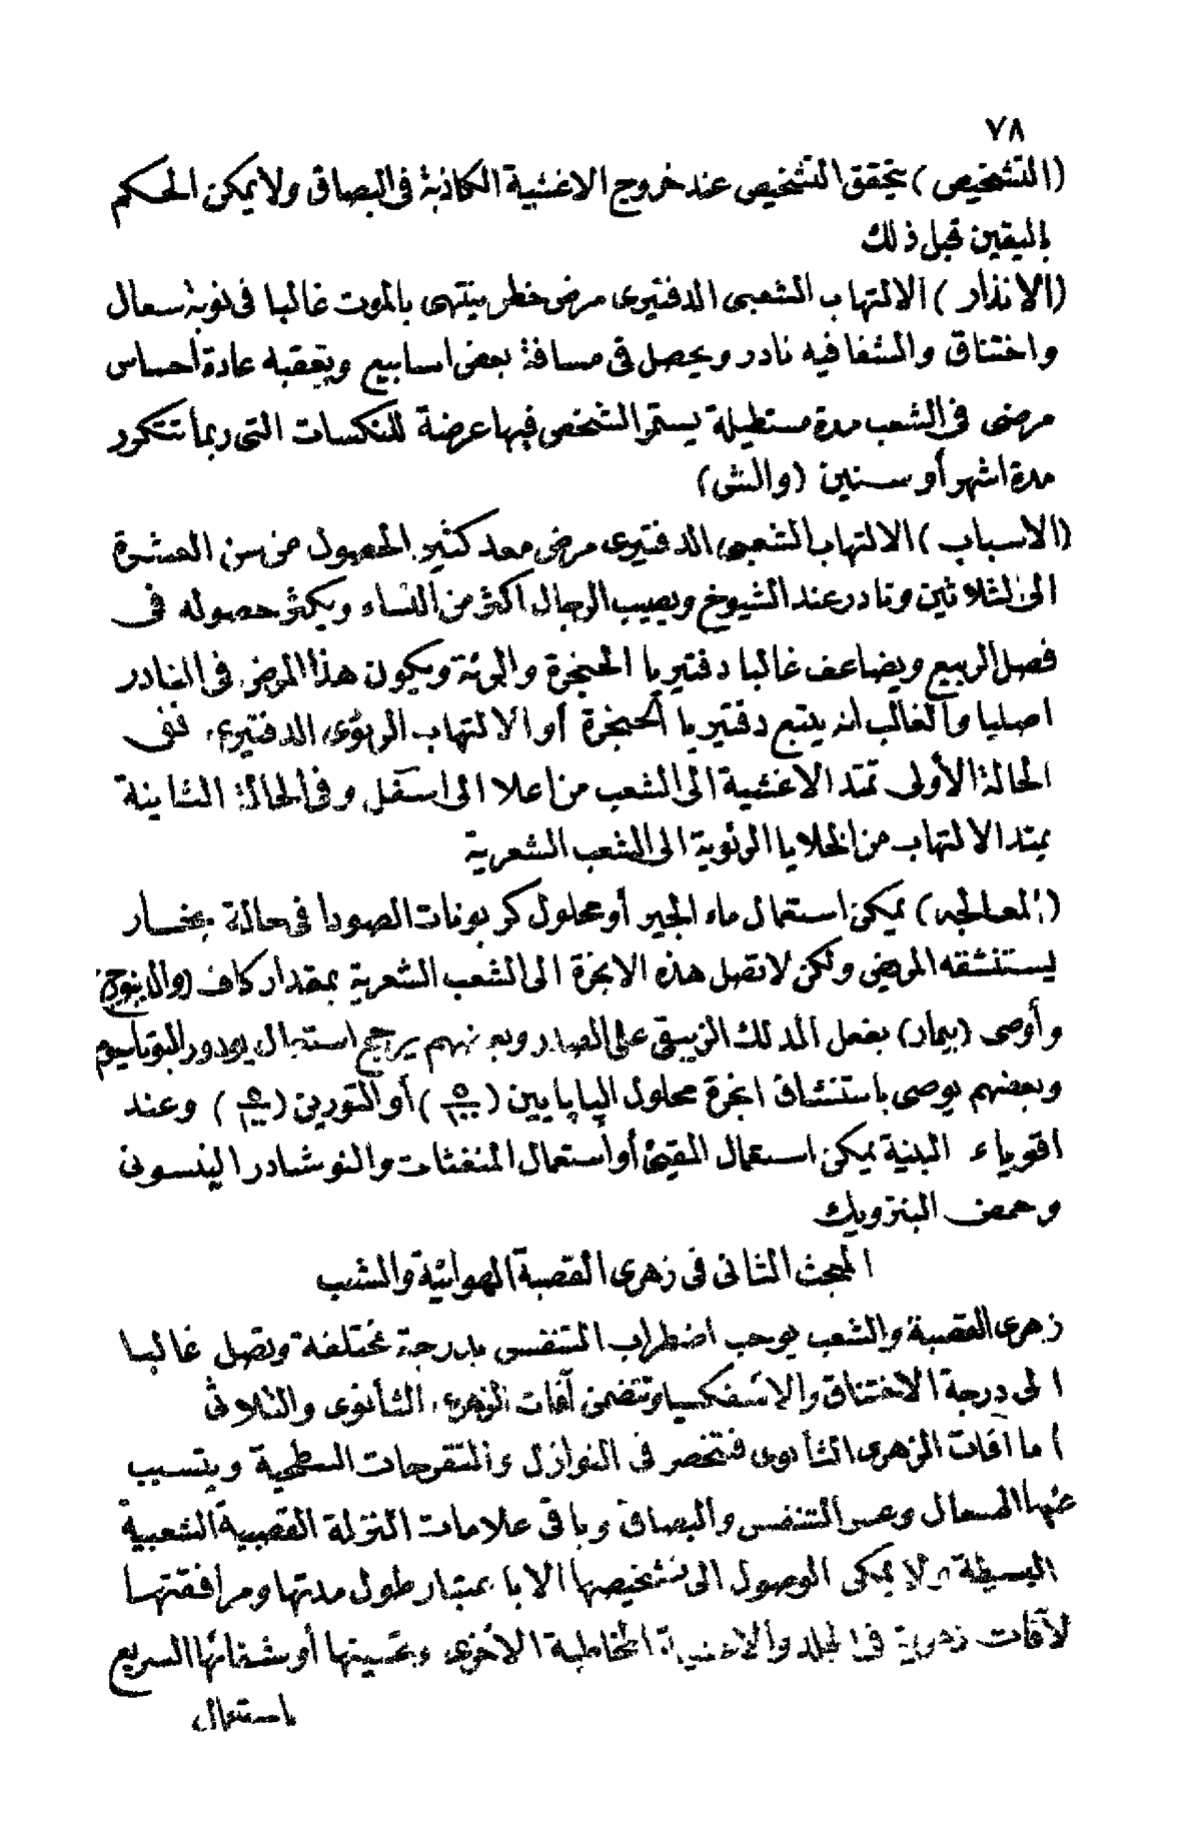 ٧٨
(التشخيص) يتحقق التشخيص عند خروج الاغشية الكاذبة فى البصاق ولا يمكن الحكم
باليقين قبل ذلك
(الانذار) الالتهاب الشعبى الدفتيرى مرض خطر ينتهى بالموت غالبا فى نوبة سعال
واختناق والشفا فيه نادر ويحصل فى مسافة بعض اسابيع ويعقبه عادة احساس
مرضى فى الشعب مدة مستطيلة يستمر الشخص فيها عرضة للنكسات التى ربما تتكرر
مدة اشهر أو سنين (والش)
(الاسباب) الالتهاب الشعبى الدفتيرى مرض معد كثير الحصول من سن العشرة
الى الثلاثين ونادر عند الشيوخ ويصيب الرجال اكثر من النساء ويكثر حصوله فى
فصل الربيع ويضاعف غالبا دفتيريا الحنجرة والرئة ويكون هذا المرض فى النادر
اصليا والغالب انه يتبع دفتيريا الحنجرة أو الالتهاب الرئوى الدفتيرى ففى
الحالة الأولى تمتد الاغشية الى الشعب من اعلا الى اسفل وفى الحالة الثانية
يمتد الالتهاب من الخلايا الرئوية الى الشعب الشعرية
(المعالجة) يمكن استعمال ماء الجير أو محلول كربونات الصودا فى حالة بخار
يستنشقه المريض ولكن لا تصل هذه الابخرة الى الشعب الشعرية بمقدار كاف
وأوصى (بيمار) بفعل الدلك الزيبقى على الصدر وبعضهم يرجح استعمال يودور البوتاسيوم
وبعضهم يوصى باستنشاق ابخرة محلول الپاپايين (٥/١٠٠) أو التورين (٥/١٠٠) وعند
اقوياء البنية يمكن استعمال المقيئ أو استعمال المنفثات والنوشادر الينسونى
وحمض البنزويك
المبحث الثانى فى زهرى القصبة الهوائية والشعب
زهرى القصبة والشعب يوجب اضطراب التنفس بدرجة مختلفة وتصل غالبا
الى درجة الاختناق والاسفكسيا وتتضمن آفات الزهرى الثانوى والثلاثى
اما آفات الزهرى الثانوى فتنحصر فى النوازل والتقرحات السطحية ويتسبب
عنها السعال وعسر التنفس والبصاق وباقى علامات النزلة القصبية الشعبية
البسيطة ولا يمكن الوصول الى تشخيصها الا باعتبار طول مدتها ومرافقتها
لآفات زهرية فى الجلد والاغشية المخاطية الاخرى وتحسينها أو شفائها السريع
باستعمال